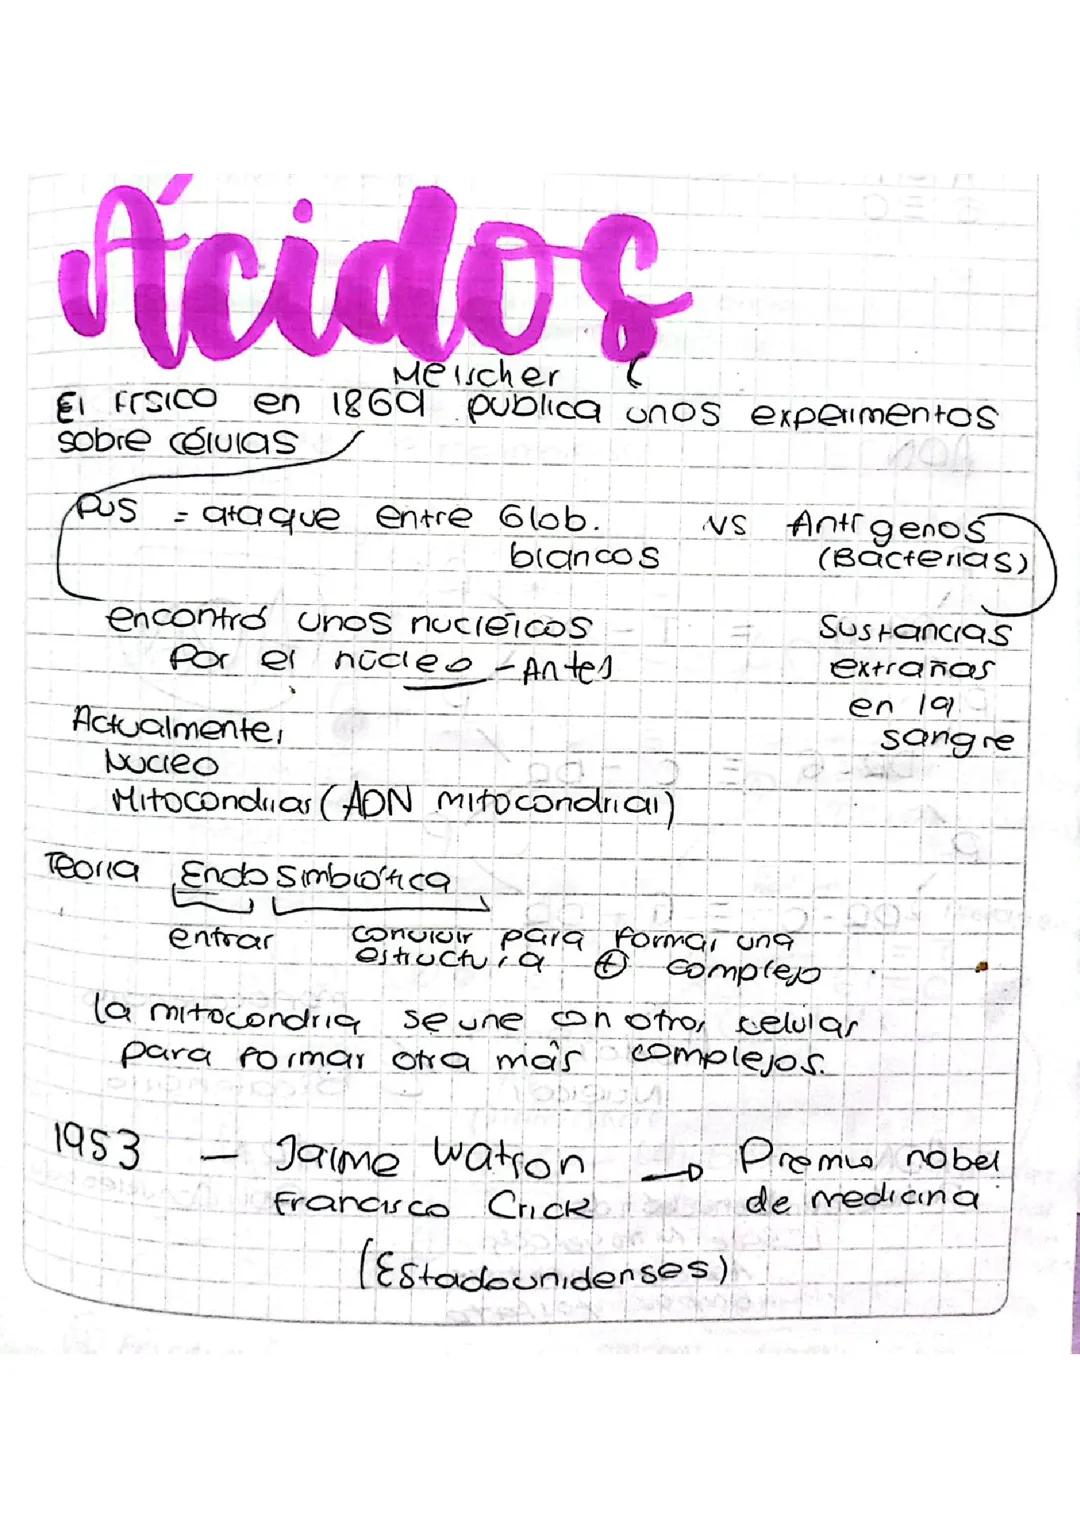 Ácidos
Meischer
El físico en 1869 publica unos experimentos
sobre células
Pus = ataque entre Glob. vs Antígenos
blancos (Bacterias)
encontró unos nucléicos Sustancias
Por el núcleo - Antes extrañas
en la
Actualmente, sangre
Nucleo
Mitocondrias (ADN mitocondrial)
Teoria Endo Simbiótica
entrar convivir para formar una
estructura ⊕ complejo
la mitocondria se une con otras celular
para formar otra más complejos.
1953 - Jaime Watson → Premio nobel
Francisco Crick de medicina
(Estadounidenses)